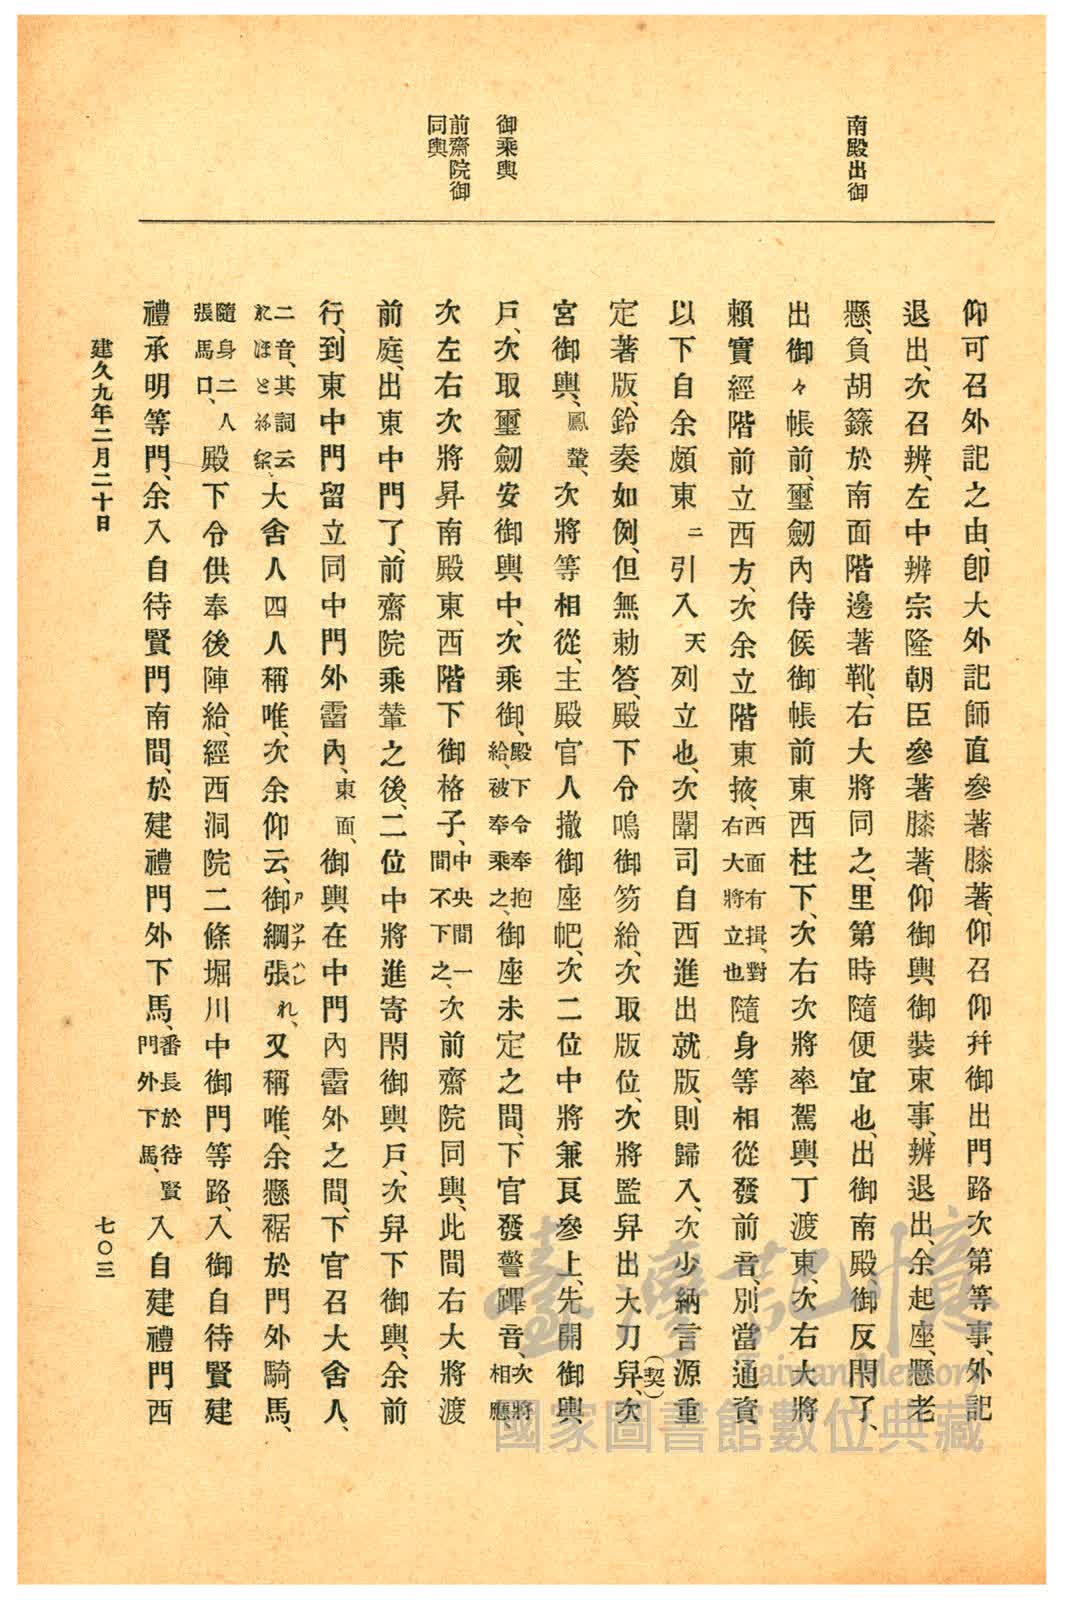 南殿出御
御乘輿
前齋院御
同輿
仰可召外記之由、卽大外記師直參著膝著、仰召仰幷御出門路次第等事、外記
退出、次召辨、左中辨宗隆朝臣參著膝著、仰御輿、御裝束事、辨退出、余起座、懸老
懸、負胡籙於南面階邊著靴、右大將同之、里第時隨便宜也、出御南殿御反閇了、
出御々帳前、璽劒內侍候御帳前東西柱下、次右次將率駕輿丁渡東、次右大將
賴實經階前立西方、次余立階東掖、西面有揖、對右大將立也隨身等相從發前音、別當通資
以下自余頗東ニ引入天列立也、次闈司自西進出就版、則歸入、次少納言源重
定著版、鈴奏如例、但無勅答、殿下令鳴御笏給、次取版位、次將監舁出大刀舁、(契)次
宮御輿、鳳輦、次將等相從、主殿官人撤御座帊、次二位中將兼良參上、先開御輿
戶、次取璽劒安御輿中、次乘御、殿下令奉抱給、被奉乘之、御座未定之間、下官發警蹕音、次將相應、
次左右次將昇南殿東西階下御格子、中央間一間不下之、次前齋院同輿、此間右大將渡
前庭、出東中門了、前齋院乘輦之後、二位中將進寄閇御輿戶、次舁下御輿、余前
行、到東中門留立同中門外霤內、東面、御輿在中門內霤外之間、下官召大舍人、
二音、其詞云大舍人四人稱唯、次余仰云、御綱張れ、アツナハレ又稱唯、余懸裾於門外騎馬、
隨身二人張馬口、殿下令供奉後陣給、經西洞院二條堀川中御門等路、入御自待賢建
禮承明等門、余入自待賢門南間、於建禮門外下馬、番長於待賢門外下馬、入自建禮門西
建久九年二月二十日
七〇三
臺灣記憶
Taiwan Memory
國家圖書館數位典藏